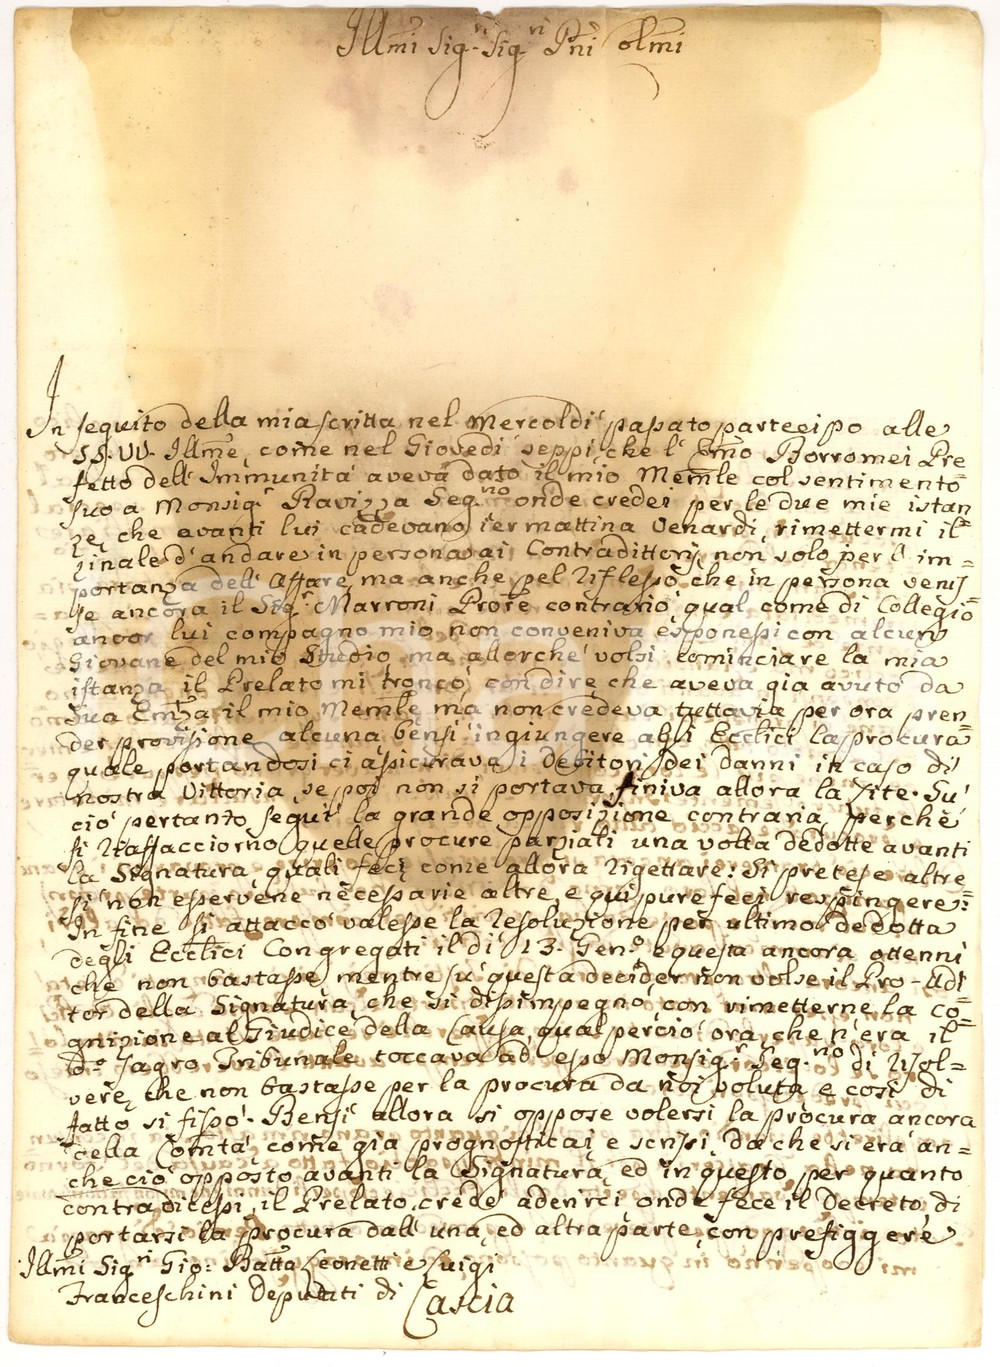 Illmi Sig.ri Sig.ri Pni Colmi
In seguito della mia scritta nel Mercoldi passato partecipo alle
SS. VV. Illme, come nel Giovedi seppi, che l' Emo Borromei Pre
fetto dell' Immunita aveva dato il mio Memle col sentimento
suo a Monsig.r Ravizza Seg.rio onde creder per le due mie istan
ze, che avanti lui cadevano ier mattina Venardi, rimettermi il
zinale d' andare in persona ai Contradittorj, non solo per l' im=
portanza dell' Affare, ma anche pel riflesso, che in persona venis
se ancora il Sig.r Marroni Prore contrario qual come di Collegio
ancor lui compagno mio non conveniva esponessi con alcun
Giovane del mio Studio, ma allorche volsi cominciare la mia
istanza il Prelato mi troncò, con dire che aveva gia avuto da
Sua Emza il mio Memle ma non credeva tuttavia per ora pren=
der provisione alcuna bensi ingiungere agli Ecclici la procura
quale portandosi ci assicurava i Debitori dei danni in caso di
nostra Vittoria, se poi non si portava finiva allora la Lite. Su
ciò pertanto seguì la grande opposizione contraria, perchè
si riaffacciorno quelle procure parziali una volta dedotte avanti
la Segnatura, quali feci come allora rigettare: Si pretese altre
si non esservene necessarie altre, e qui pure feci respingere:
In fine si attaccò valesse la resoluzione per ultimo dedotta
degli Ecclici Congregati il dì 13. Gen.o e questa ancora ottenni
che non bastasse, mentre su questa decider non volse il Pro-Adi
tor della Segnatura, che si disimpegnò con rimetterne la co=
gnizione al Giudice della Causa, qual perciò ora, che n' era il
do Sagro Tribunale toccava ad esso Monsig.r Seg.rio di risol=
vere, che non bastasse per la procura da noi voluta e così di
fatto si fissò. Bensì allora si oppose volersi la procura ancora
della Comtà, come gia prognosticai e scrissi, da che si era an=
che ciò opposto avanti la Segnatura, ed in questo, per quanto
contradicessi, il Prelato credè aderirci onde fece il Decreto di
portarsi la procura dall' una, ed altra parte, con prefiggere
Illmi Sig.ri Gio: Batta Leonetti e Luigi
Franceschini Deputati di Cascia